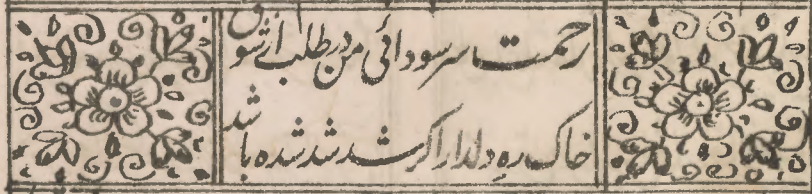 رحمت سر سودائی من در طلب ای شوق
خاک ره دلدار اگر شد شده باشد